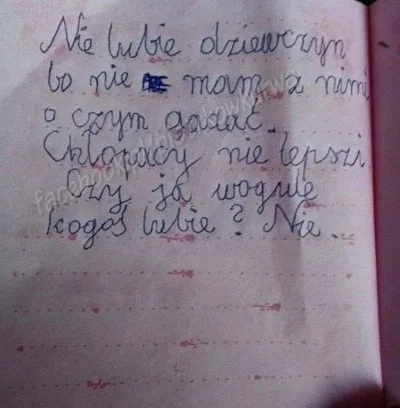 Nie lubie dziewczyn
bo nie mam z nimi
o czym gadać.
Chłopacy nie lepsi
Czy ja wogule
kogoś lubie? Nie.